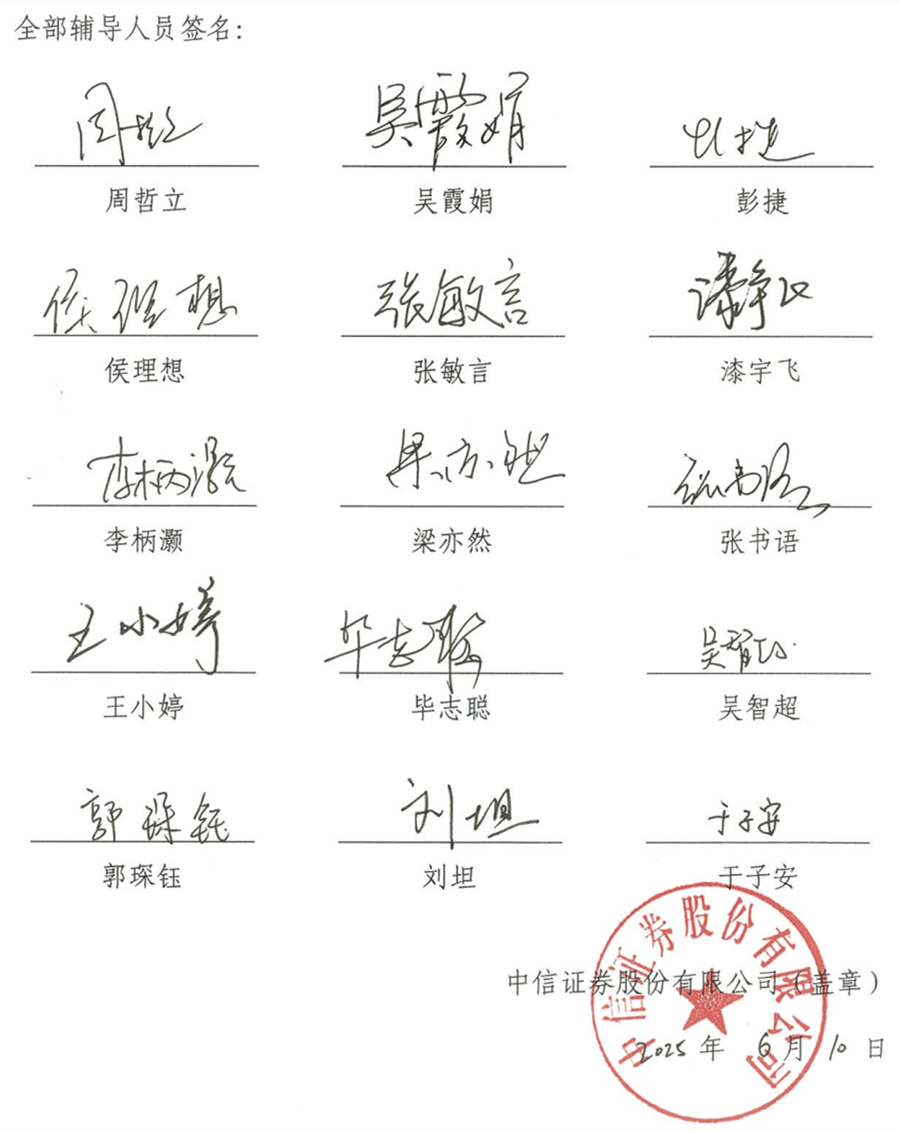 全部辅导人员签名：
周哲立 吴霞娟 彭捷
周哲立 吴霞娟 彭捷
侯理想 张敏言
侯理想 张敏言 漆宇飞
李柄灏 梁亦然 张书语
李柄灏 梁亦然 张书语
王小婷 毕志聪 吴智超
王小婷 毕志聪 吴智超
郭琛钰 刘坦 于子安
郭琛钰 刘坦 于子安
中信证券股份有限公司（盖章）
2025年 6月 10日
中信证券股份有限公司